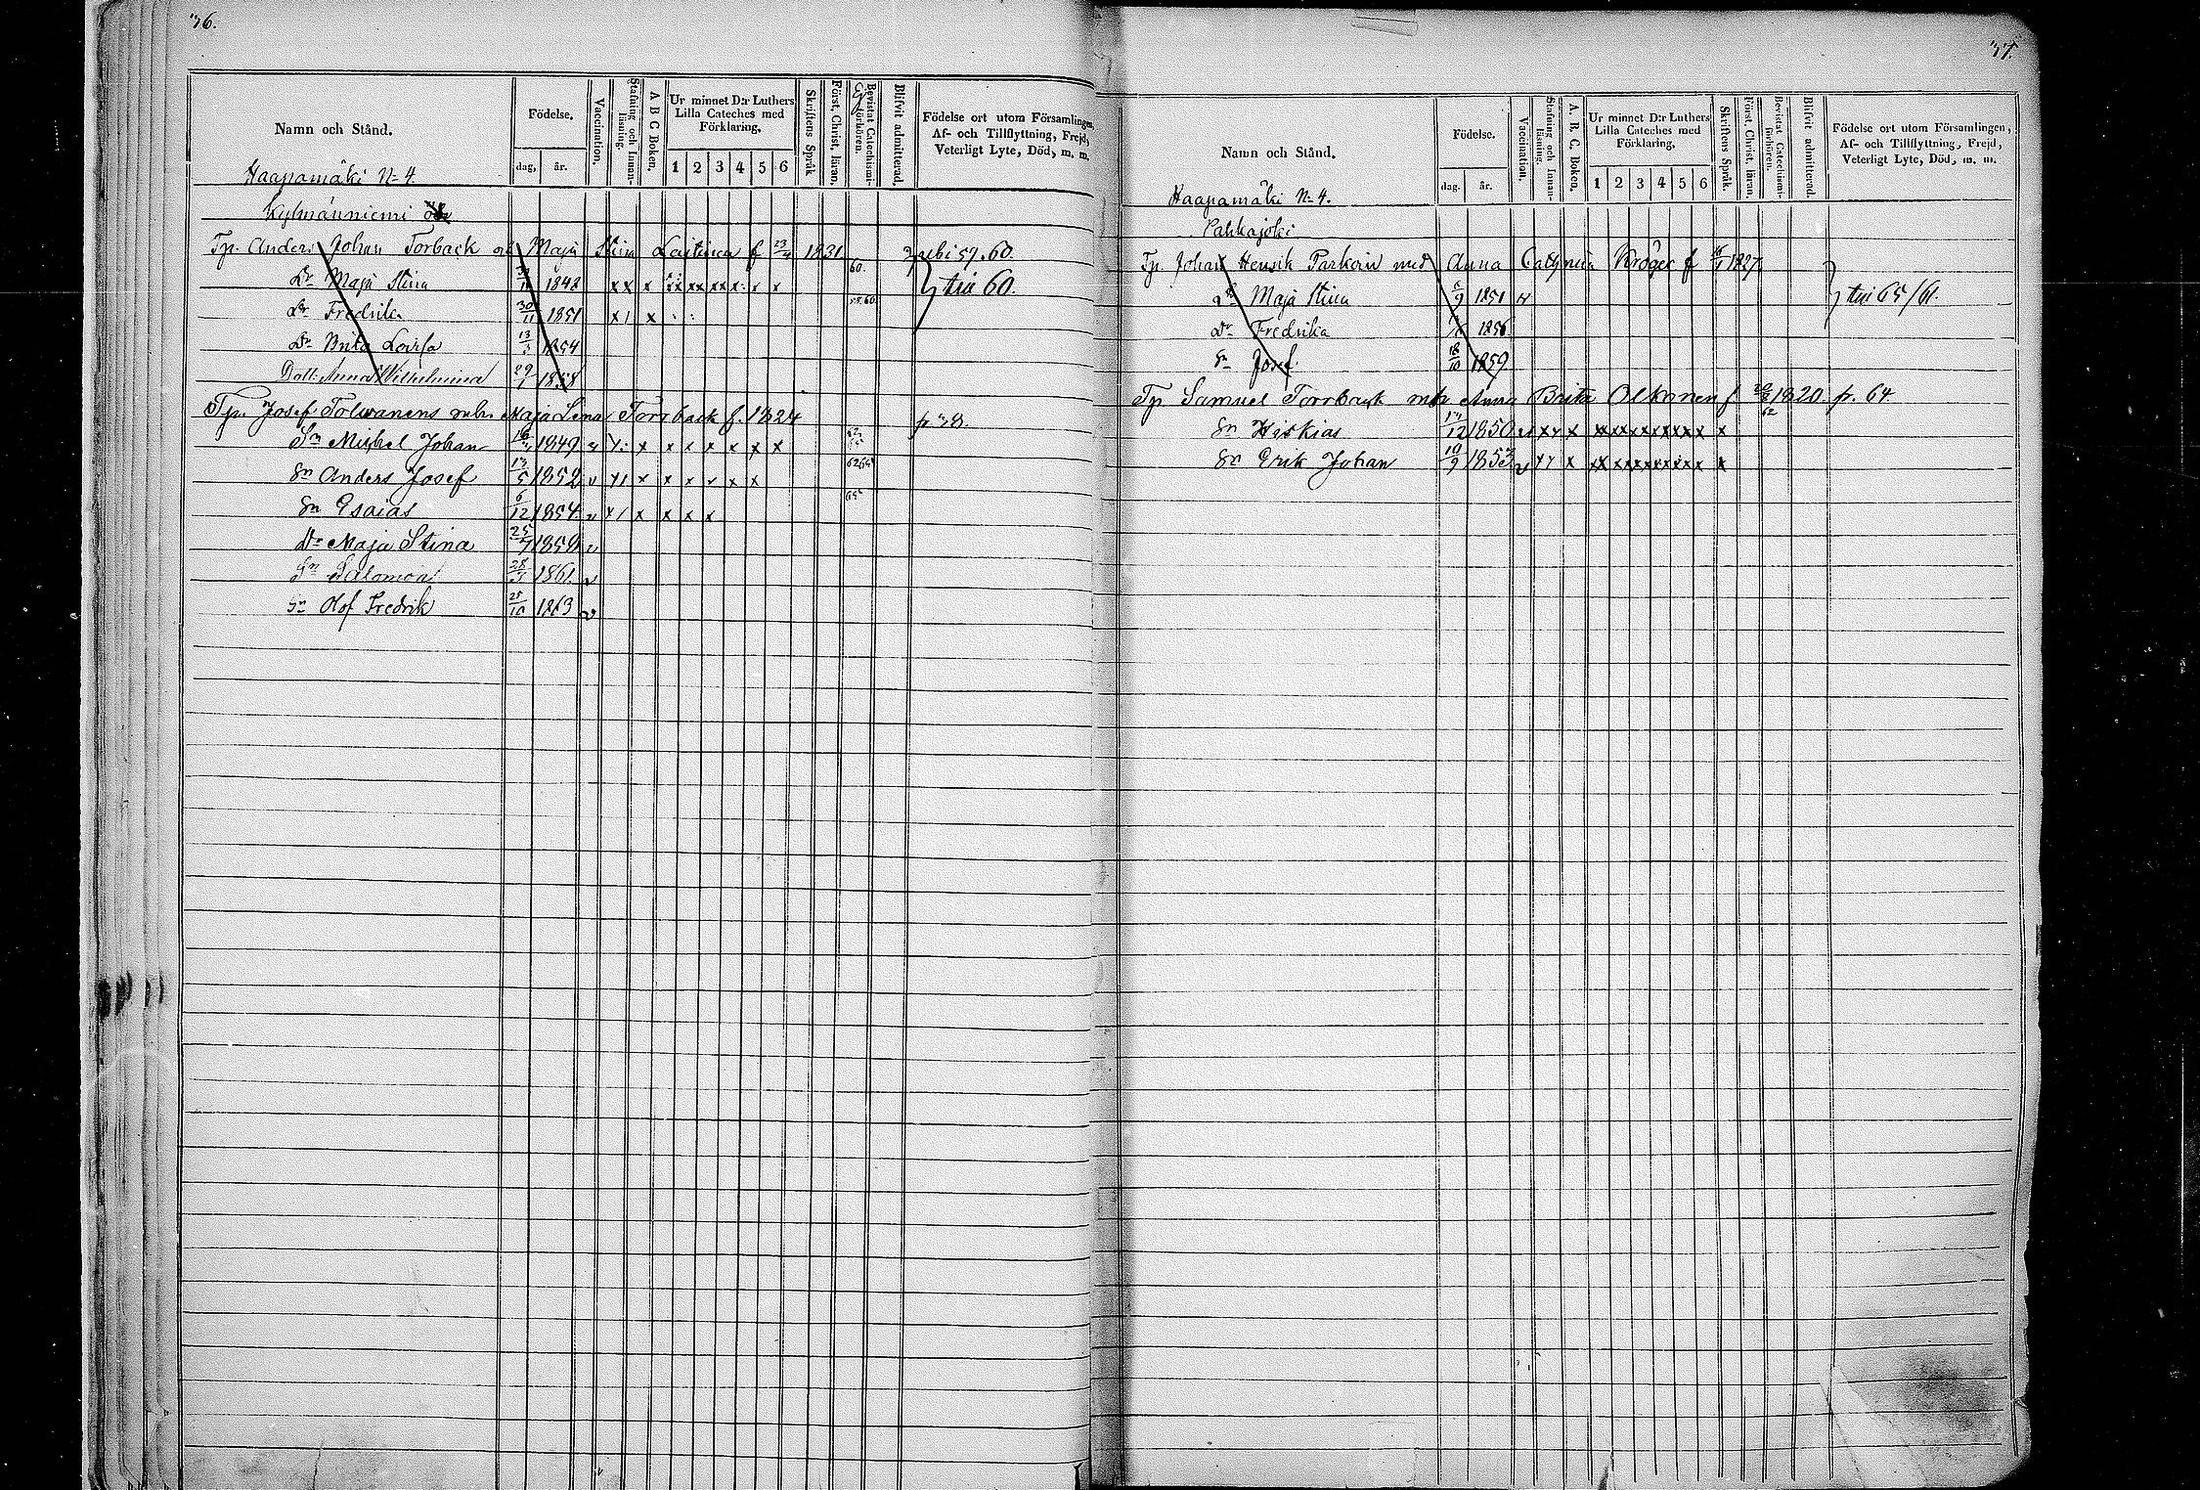 36.
Namn och Stånd. Födelse. dag, år. Vaccination, Stafning och Innan-läsning. A B C Boken, Ur minnet D:r Luthers Lilla Cateches med Förklaring, 1 2 3 4 5 6 Skriftens Språk Först. Christ. läran, Bevistat Catechismi-förhören. Blifvit admitterad, Födelse ort utom Församlingen, Af- och Tillflyttning, Frejd, Veterligt Lyte, Död, m. m.
Haapamäki N=4.
Kylmäniemi
Tp. Anders Johan Torback Maja Stina Laitinen f 23/4 1831 ubi 59.60.
Dr Maja Stina 1842 x x x x x 60. tia 60.
Dr Fredrika 30/11 1851 x / x 58.60
Dr Brita Lovisa 13/3 1854
Dott: Anna Wilhelmina 29/1 1858
Tp. Josef Tolwanens enk. Maja Lena Torrback f. 1824 p 38.
Sn Michel Johan 1849 x x x x x x x
Sn Anders Josef 13/5 1852 v x x x x x x x 62 65
Sn Esaias 6/12 1854 v x / x x x x 65
Dr Maja Stina 25/7 1858 v
Sn Salomon 28/3 1861 v
Sn Olof Fredrik 25/10 1863 v
37.
Namn och Stånd. Födelse. dag. år. Vaccination, Stafning och Innan-läsning. A. B. C. Boken, Ur minnet D:r Luthers Lilla Cateches med Förklaring, 1 2 3 4 5 6 Skriftens Språk. Först. Christ. läran. Bevistat Catechismi-förhören. Blifvit admitterad. Födelse ort utom Församlingen, Af- och Tillflyttning, Frejd, Veterligt Lyte, Död, m. m.
Haapamäki N=4.
Pahkajoki
Tp. Johan Henrik Parkoin med Anna Cathrina Kröger f 1827
Dr Maja Stina 1851 tia 65/61.
Dr Fredrika 1856
Sn Josef 18/10 1859
Tp. Samuel Torrback mh Anna Brita Olkonen f 1820. fr. 64
Sn Hiskias 17/12 1850 x x x xx xx xx xx x x
Sn Erik Johan 10/9 1853 v x x x xx xx xx xx x x